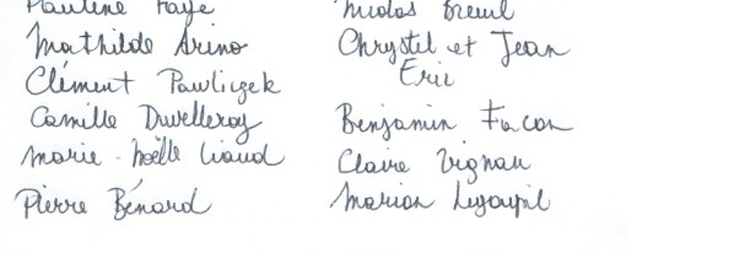 Pauline Faye
Mathilde Arino
Clément Pawliczek
Camille Duvelleroy
Marie-Noëlle Liaud
Pierre Bénard
Nicolas Breuil
Chrystel et Jean
Eric
Benjamin Facon
Claire Vignau
Marion Legoupil